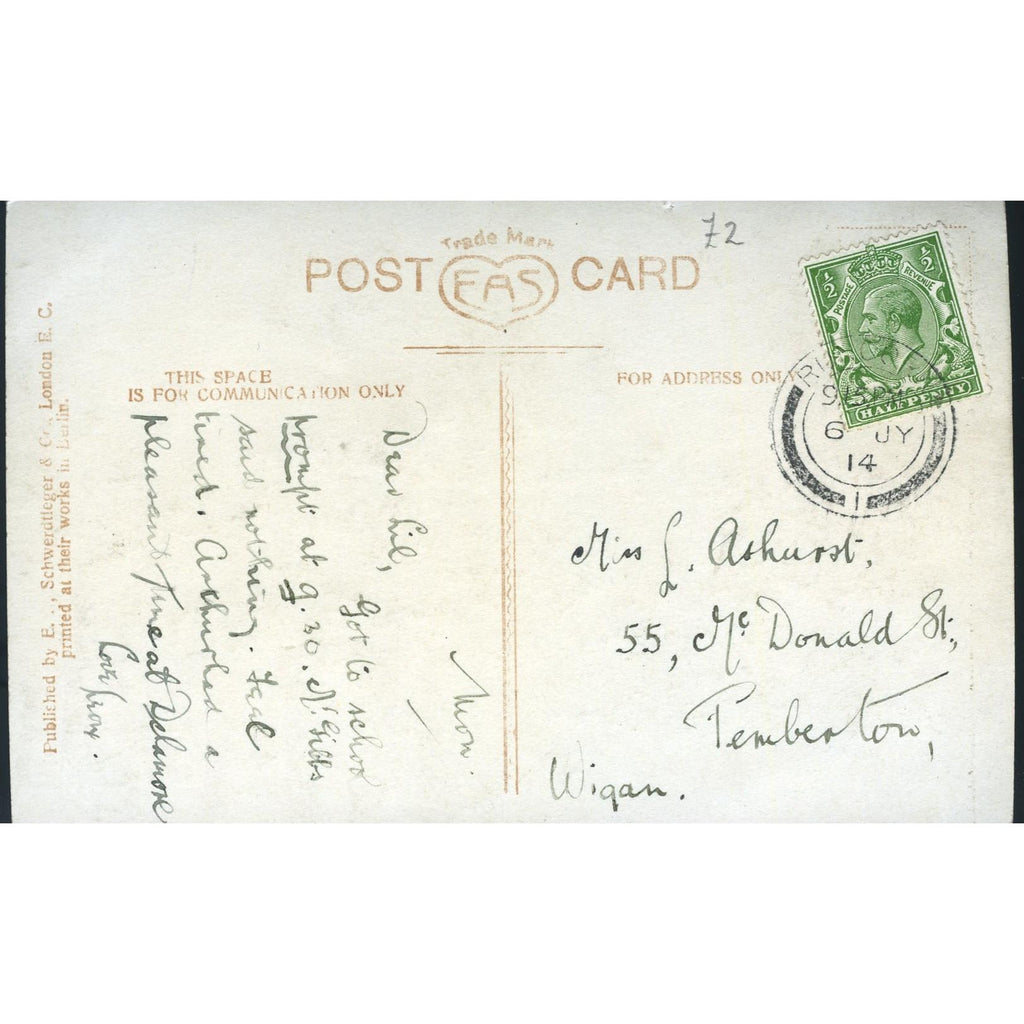 72
Trade Mark
POST EAS CARD
½ ½
POSTAGE REVENUE
HALFPENNY
THIS SPACE
IS FOR COMMUNICATION ONLY
FOR ADDRESS ONLY
6 JY
14
1
Published by E. Schwerdtfeger & Co., London E. C.
printed at their works in Berlin.
Mon.
Dear Lil,
Got to school
prompt at 9.30. Mr Gibbs
said nothing. Feel
tired. Arthur had a
pleasant time at Delamore
Love from.
Miss L. Ashurst,
55, Mc Donald St,
Pemberton,
Wigan.